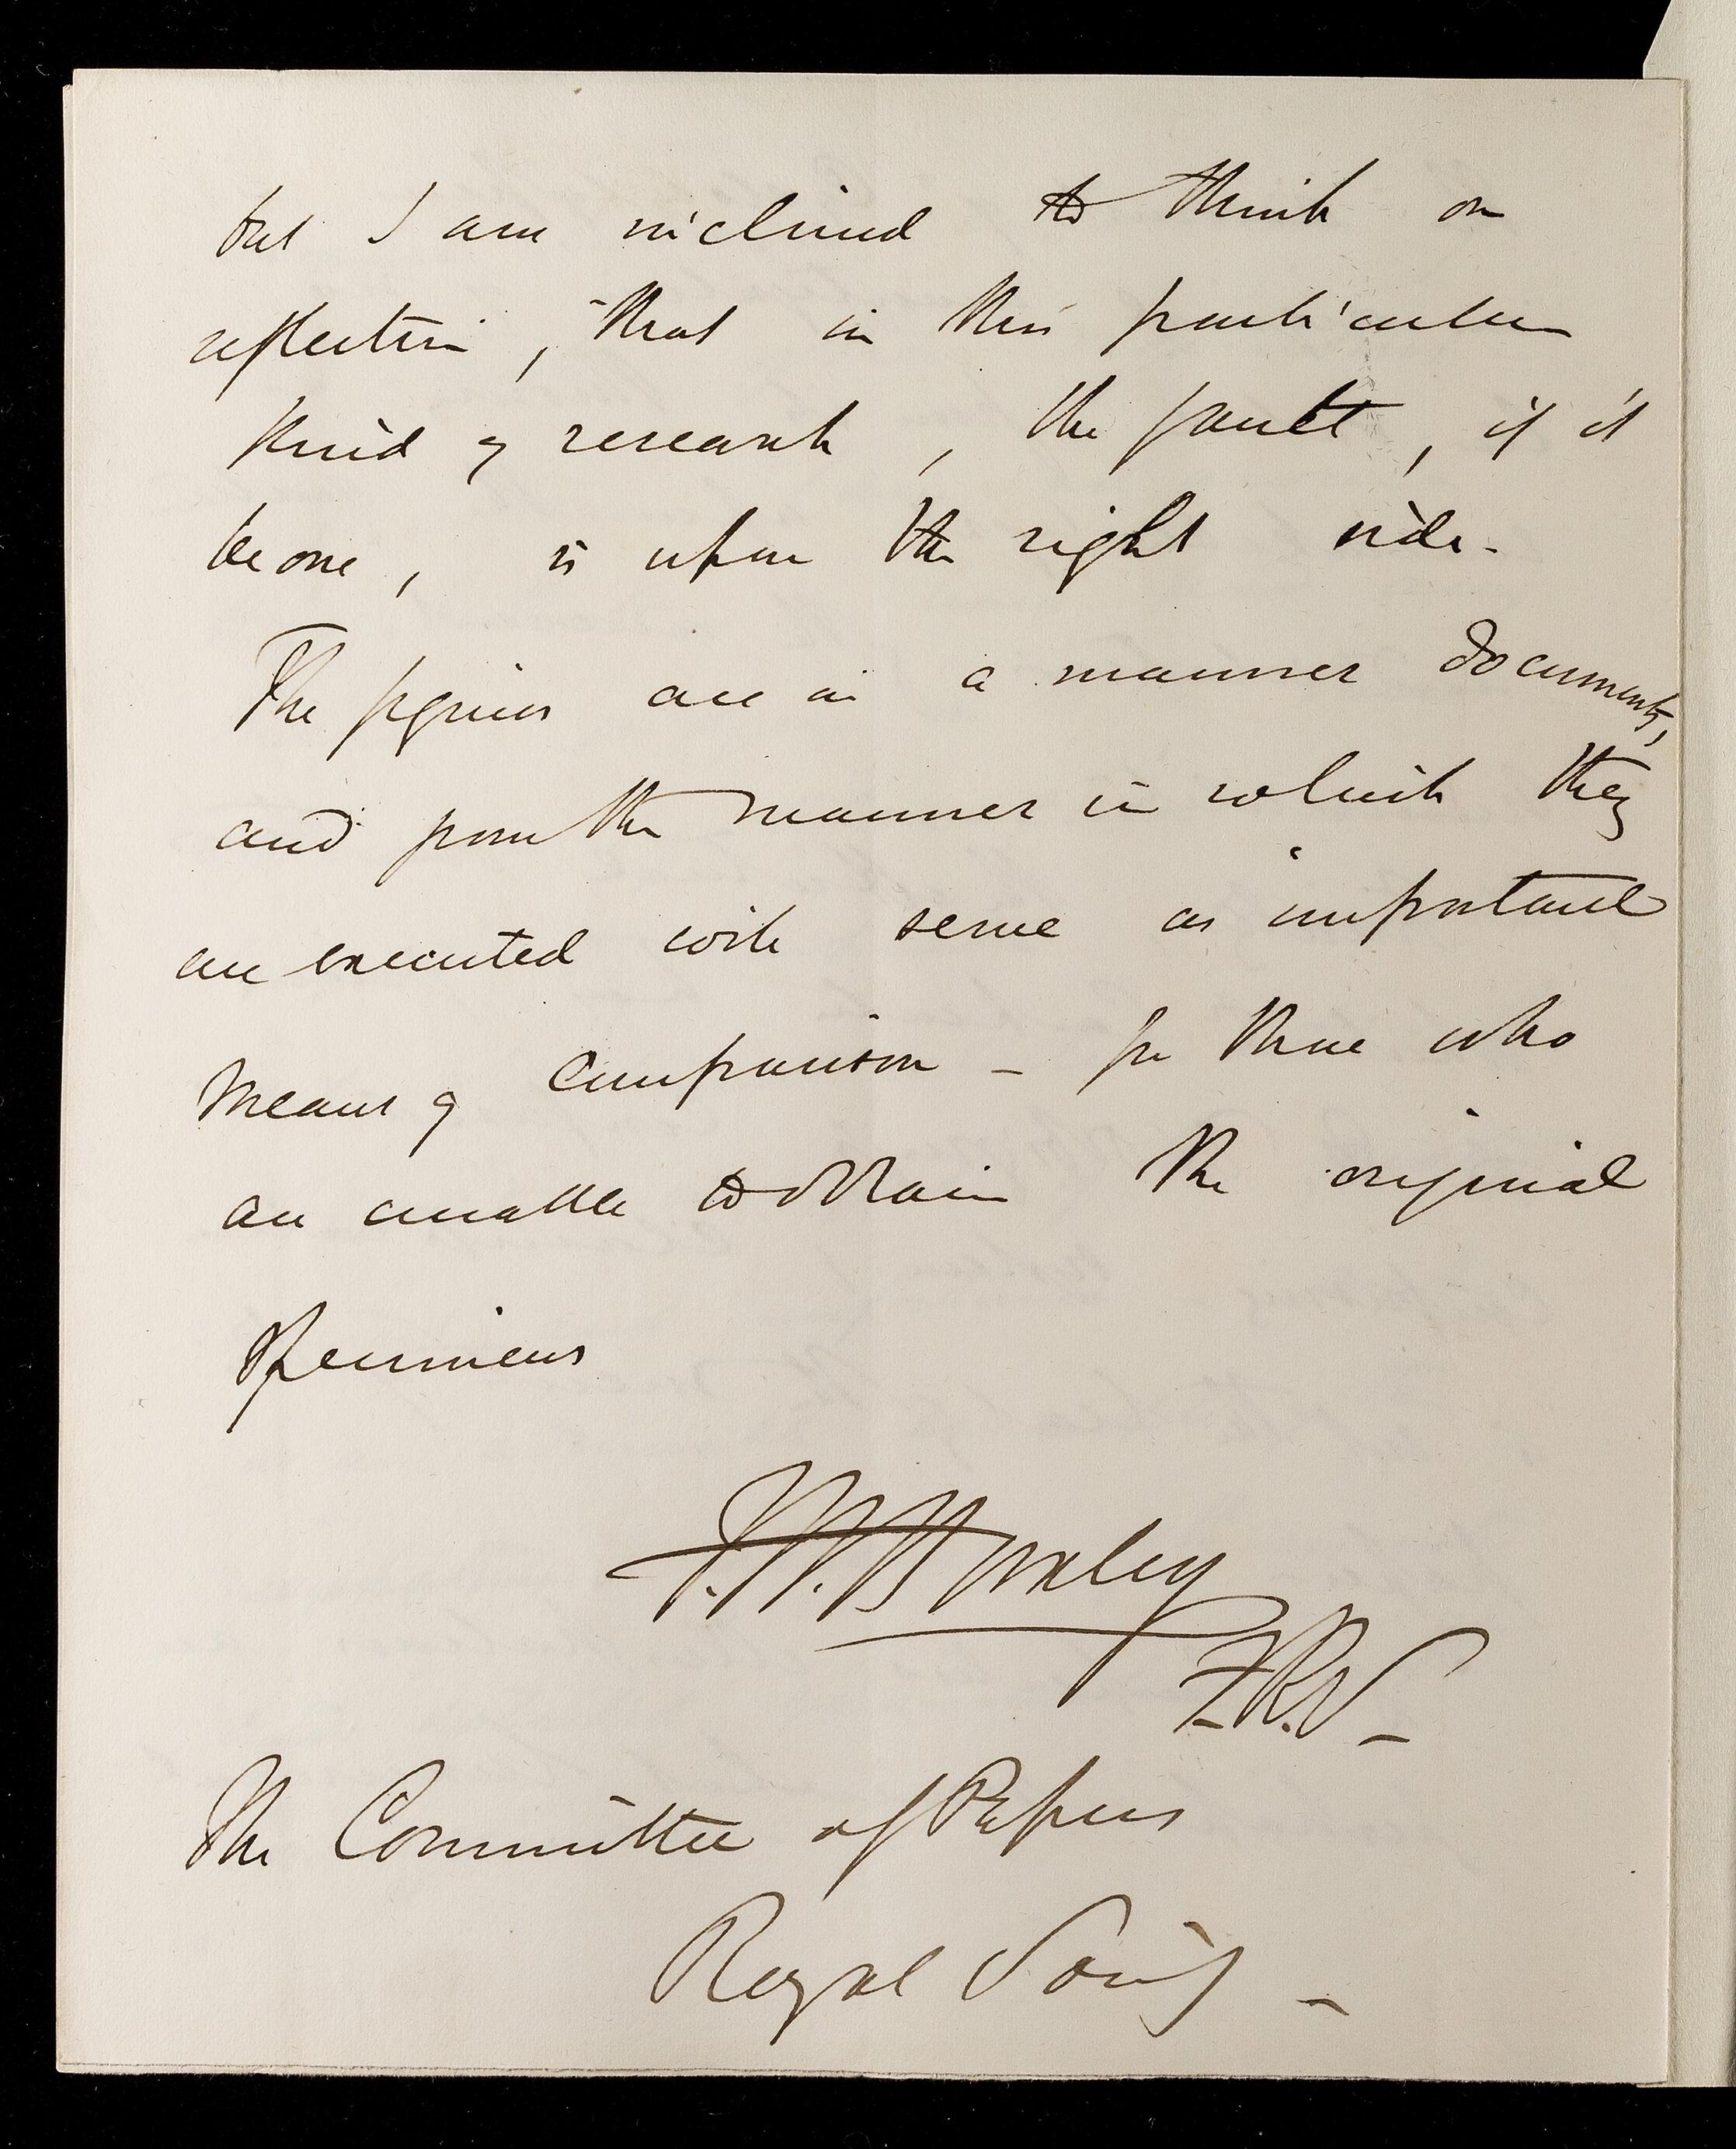 but I am inclined to think on
reflection, that in this particular
kind of research, the fault, if it
be one, is upon the right side.
The figures are in a manner documents,
and from the manner in which they
are executed will serve as important
means of comparison – for those who
are unable to obtain the original
specimens
T.H. Huxley
F.R.S –
The Committee of Papers
Royal Society –